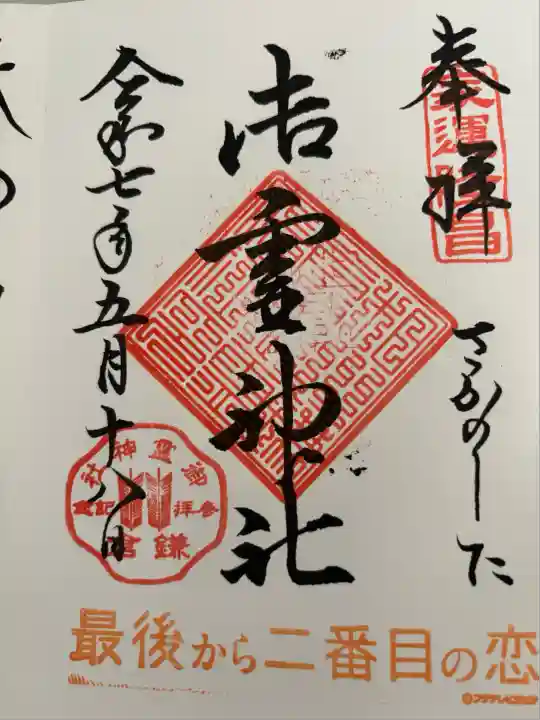 奉拝
家運隆昌
さかのした
御霊神社
令和七年五月十八日
御霊神社
参拝記念
鎌倉
最後から二番目の恋